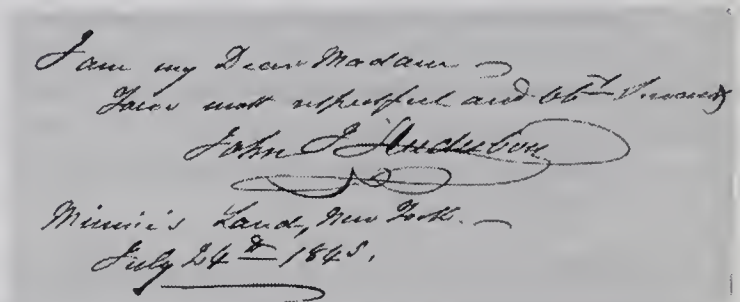 I am my Dear Madam
Your most respectful and Obt. Servant
John J Audubon
Minnie's Land, New York.
July 24th 1845.